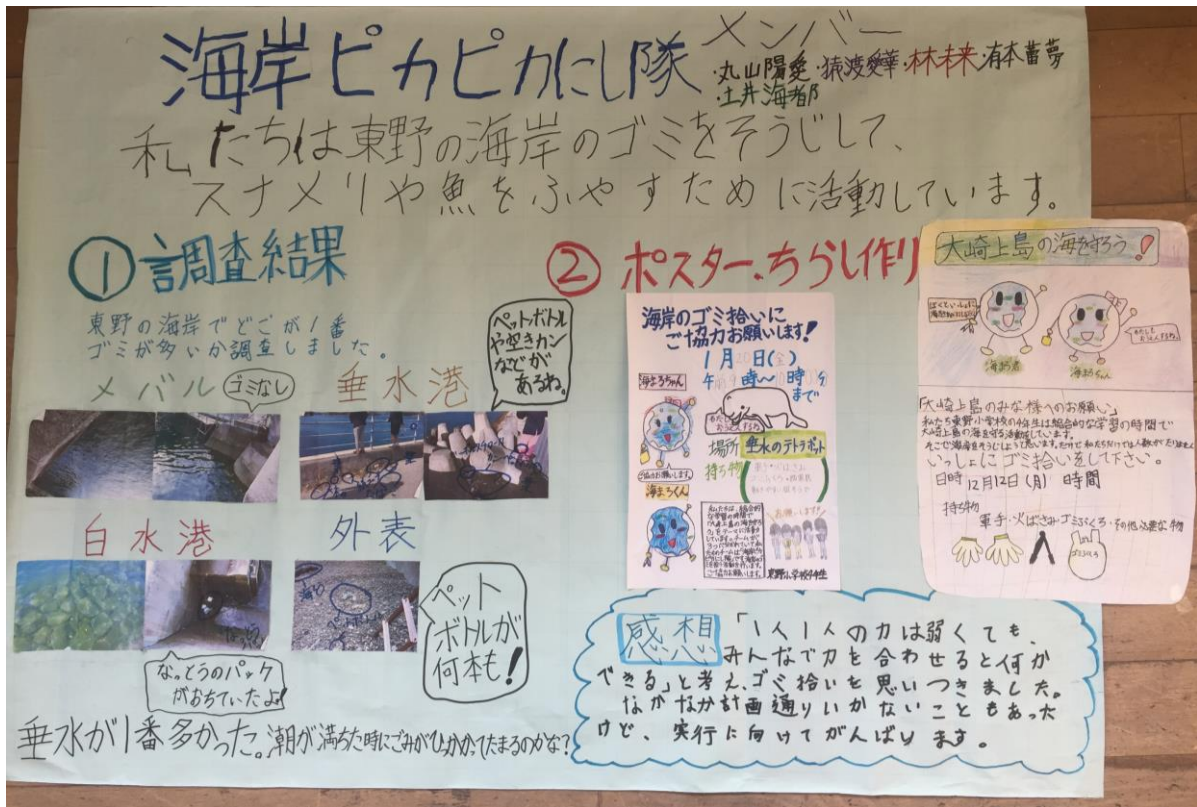 海岸ピカピカにし隊
メンバー
・丸山陽愛・猿渡愛華・林未来・有本蕾夢
・土井海都
私たちは東野の海岸のゴミをそうじして、
スナメリや魚をふやすために活動しています。
①調査結果
東野の海岸でどこが1番
ゴミが多いか調査しました。
メバル
ゴミなし
垂水港
ペットボトル
や空きカン
などが
あるね。
白水港
外表
なっとうのパック
がおちていたよ!
ペット
ボトルが
何本も!
垂水が1番多かった。潮が満ちた時にごみがひっかかってたまるのかな?
②ポスター、ちらし作り
海岸のゴミ拾いに
ご協力お願いします!
1月20日(金)
まで
海まるちゃん
場所 垂水のテトラポット
持ち物
海まるくん
お願いします!!
東野小学校4年生
大崎上島の海を守ろう!
海まる君
海まるちゃん
「大崎上島のみな様へのお願い」
私たち東野小学校の4年生は総合的な学習の時間で
大崎上島の海を守る活動をしています。
いっしょにゴミ拾いをして下さい。
日時 12月12日(月) 時間
持ち物
軍手・火ばさみ・ゴミぶくろ・その他必要な物
ゴミぶくろ
感想
「1人1人の力は弱くても、
みんなで力を合わせると何か
できる」と考え、ゴミ拾いを思いつきました。
なかなか計画通りいかないこともあった
けど、実行に向けてがんばります。